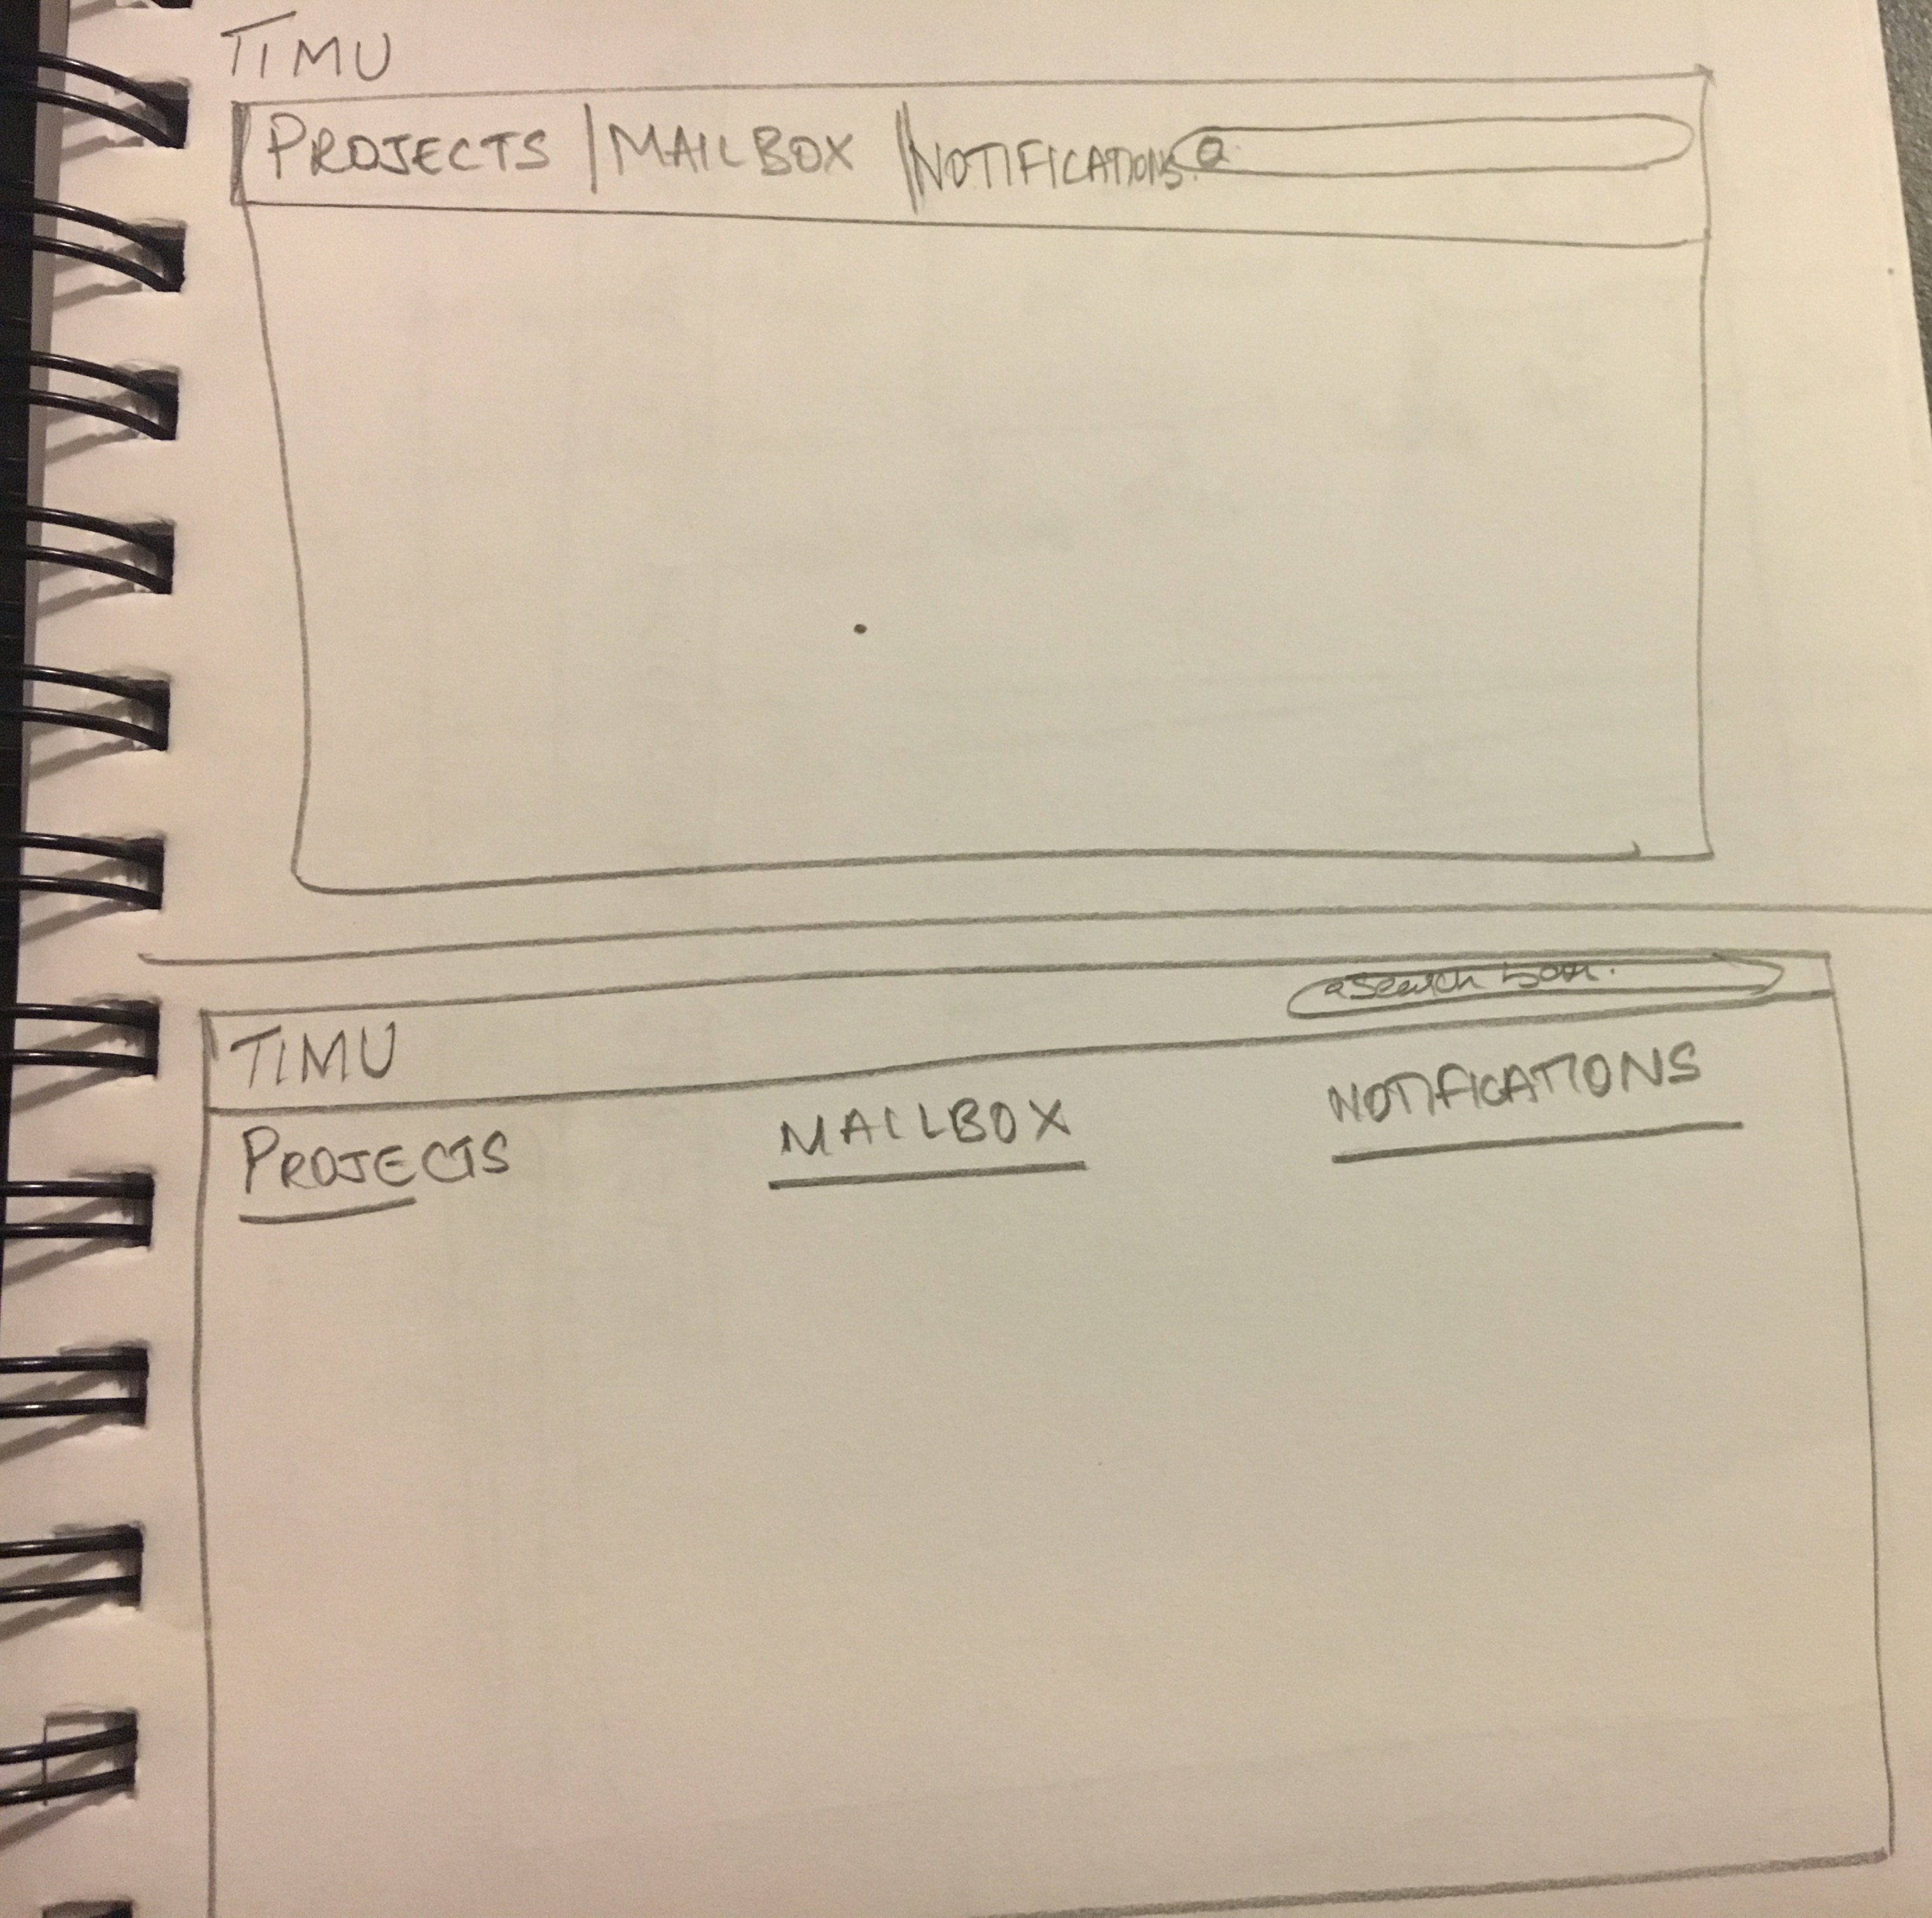 TIMU
PROJECTS | MAILBOX | NOTIFICATIONS
search bar.
TIMU
PROJECTS MAILBOX NOTIFICATIONS